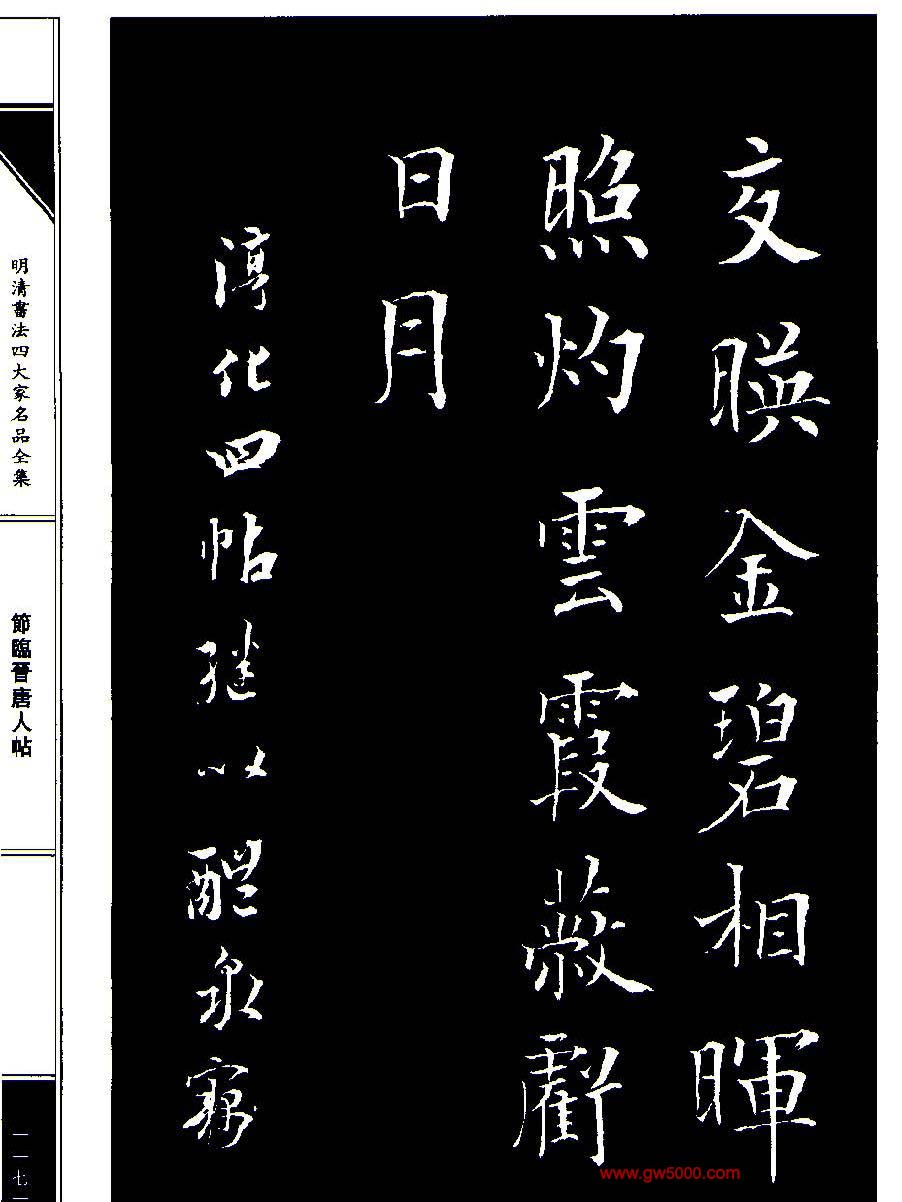 交暎金碧相暉
照灼雲霞蔽虧
日月
淳化四帖繼以醴泉窮
明清書法四大家名品全集
節臨晉唐人帖
一一七
www.gw5000.com